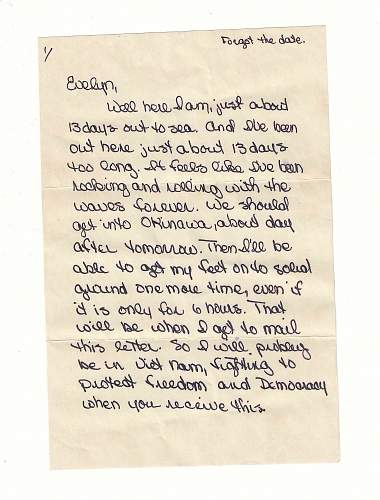 Forgot the date.
1/
Evelyn,
Well here I am, just about
13 days out to sea. And I've been
out here just about 13 days
too long. It feels like I've been
rocking and rolling with the
waves forever. We should
get into Okinawa, about day
after tomorrow. Then I'll be
able to get my feet on to solid
ground one more time, even if
it is only for 6 hours. That
will be when I get to mail
this letter. So I will probley
be in Viet Nam, fighting to
protect freedom and Democracy
when you receive this.